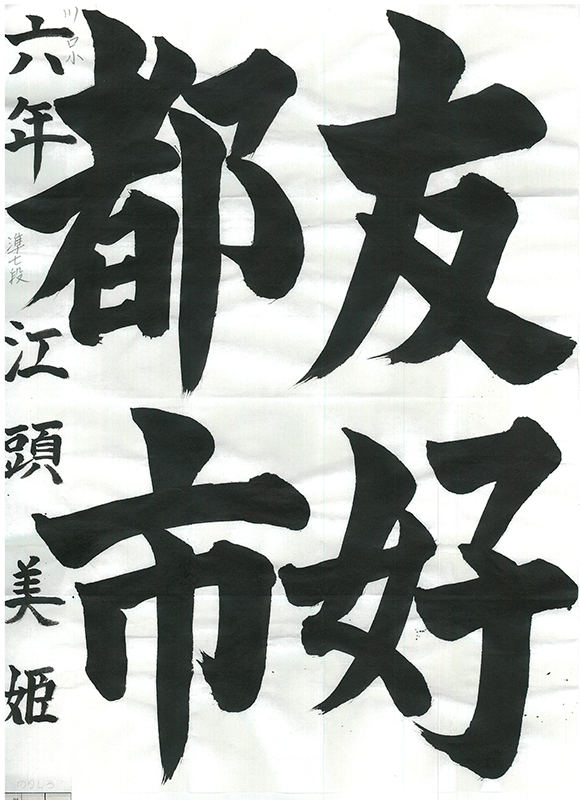 友好
都市
六年 江頭美姫
川口小
準七段
のりしろ